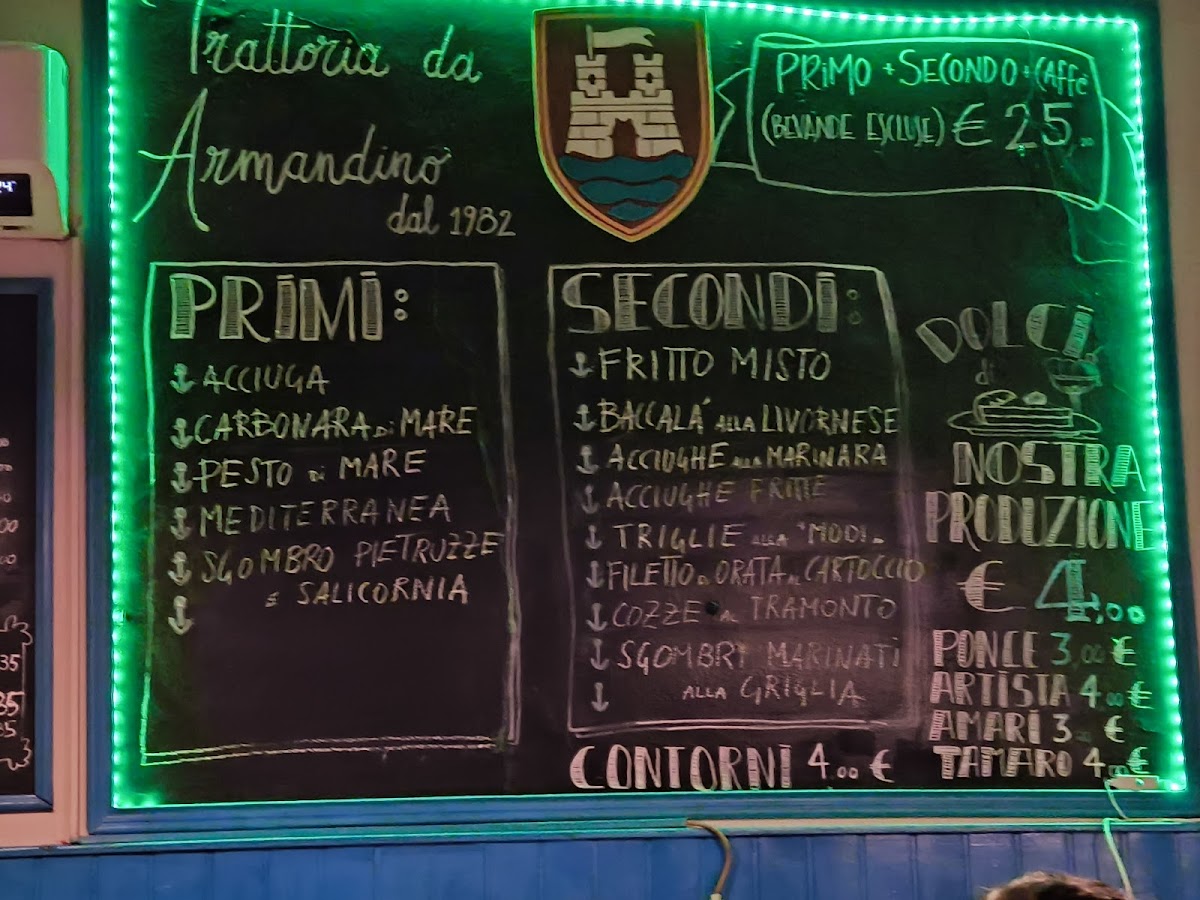 Trattoria da
Armandino
dal 1982
PRiMO + SECONDO + CAFFè
(BEVANDE ESCLUSE) € 25,00
PRiMi:
ACCIUGA
CARBONARA Di MARE
PESTO di MARE
MEDITERRANEA
SGOMBRO PIETRUZZE
E SALICORNIA
SECONDi:
FRITTO MISTO
BACCALA' ALLA LIVORNESE
ACCIUGHE ALLA MARINARA
ACCIUGHE FRITTE
TRIGLIE ALLA "MODI"
FILETTO D ORATA AL CARTOCCIO
COZZE AL TRAMONTO
SGOMBRI MARINATI
ALLA GRIGLIA
CONTORNI 4,00 €
DOLCi
di
NOSTRA
PRODUZIONE
€ 4,00
PONCE 3,00 €
ARTISTA 4,00 €
AMARI 3 €
TAMARO 4,00 €
24°
00
00
35
35